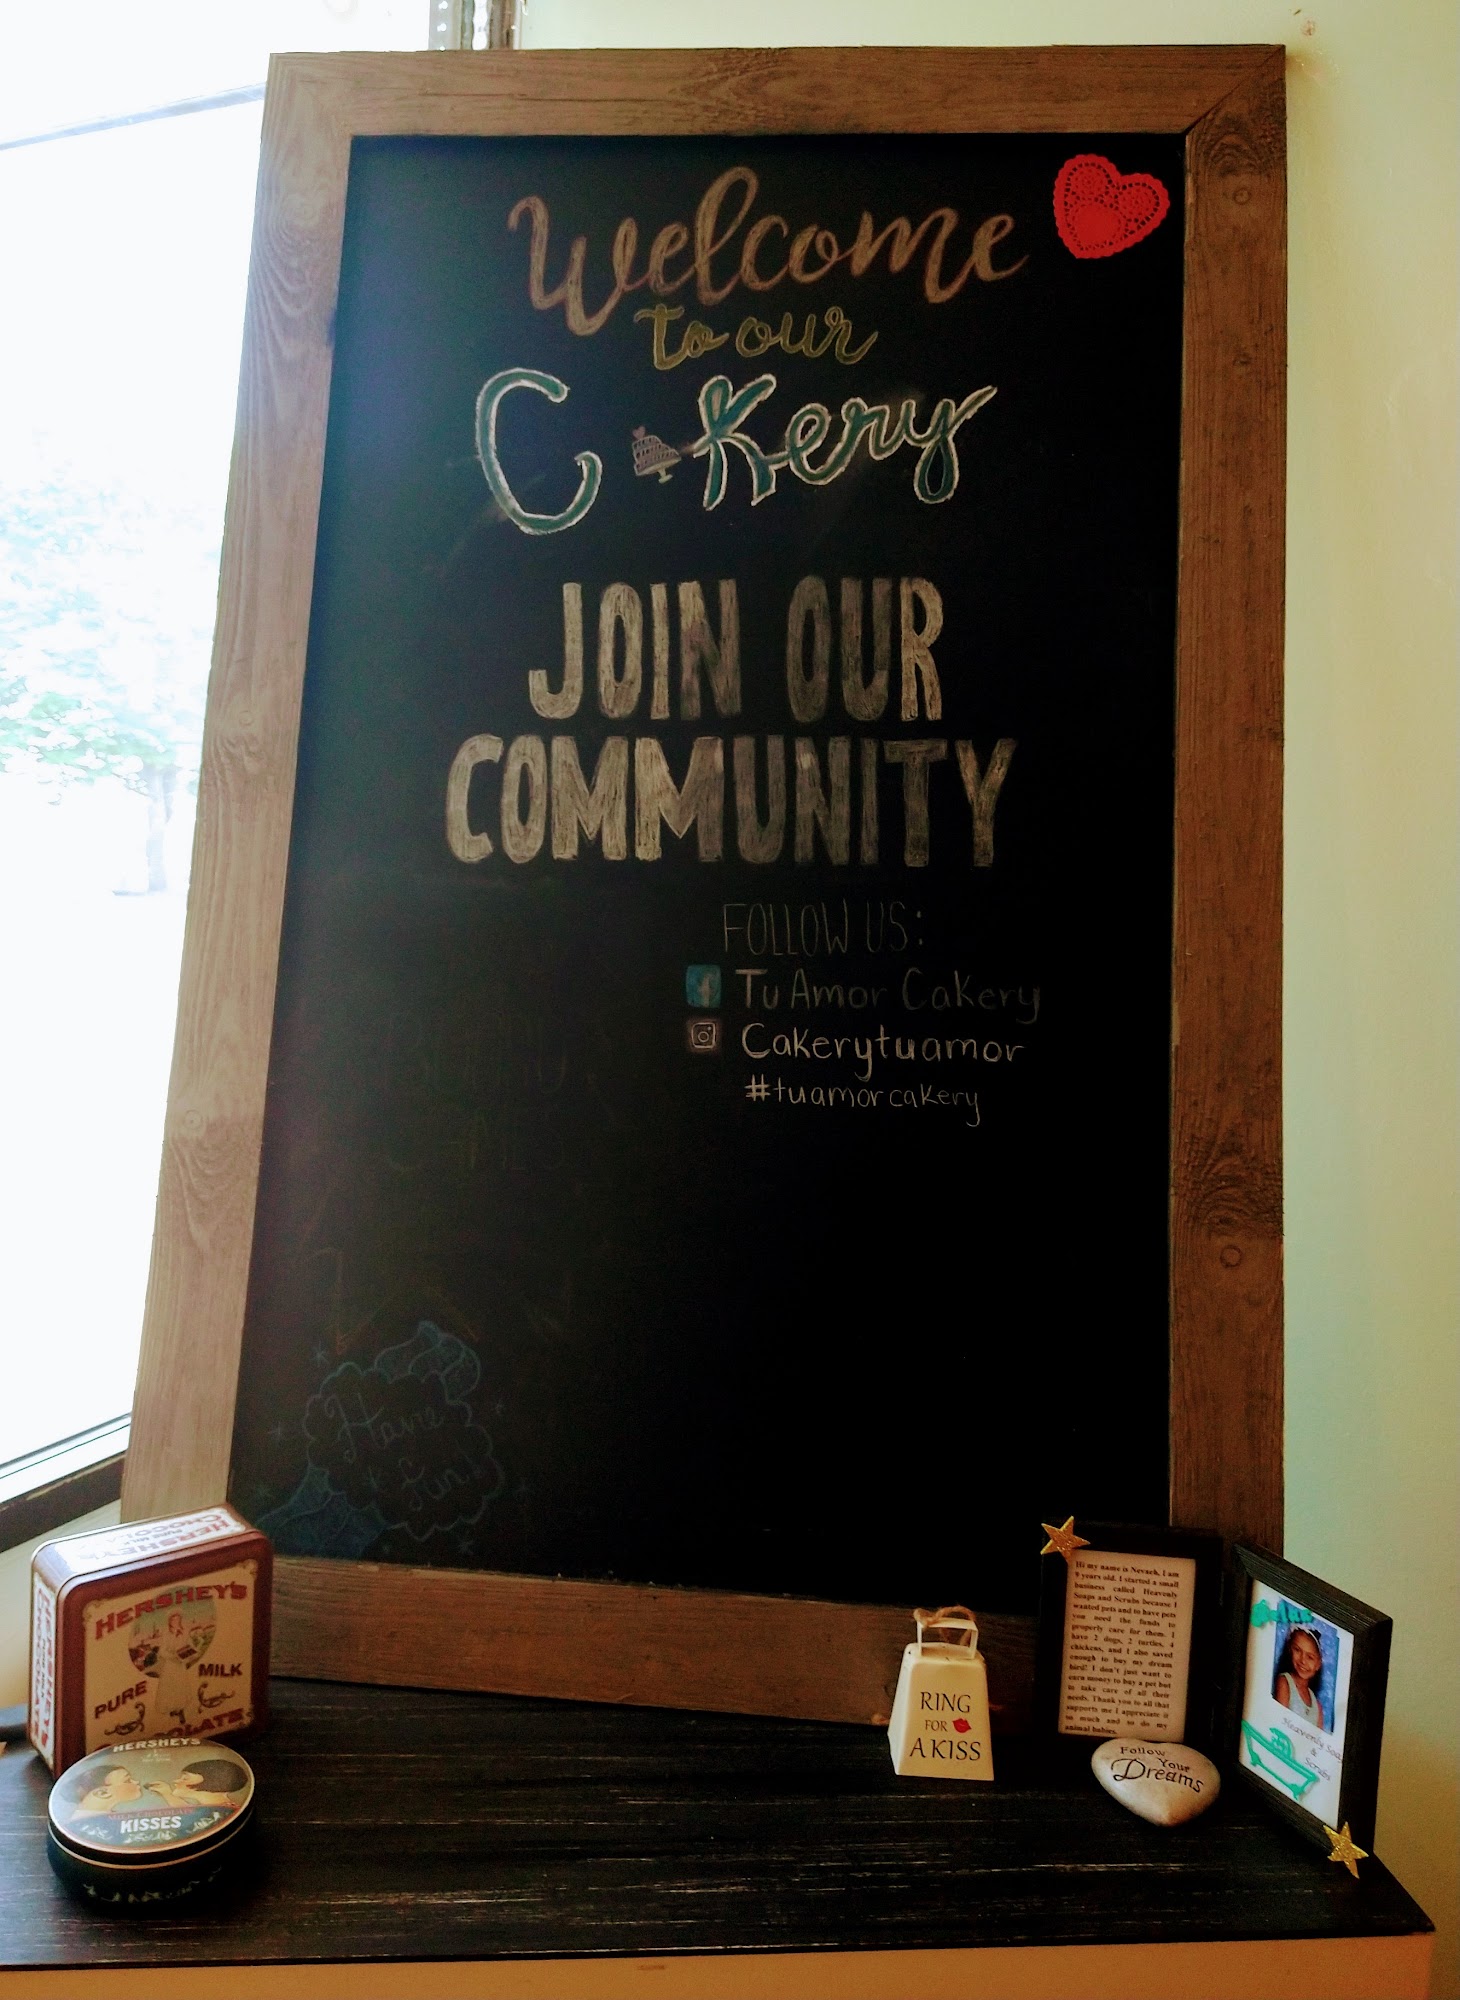 Welcome
to our
C Kery
JOIN OUR
COMMUNITY
FOLLOW US:
Tu Amor Cakery
Cakerytuamor
#tuamorcakery
Have
fun!
HERSHEY'S
CHOCOLA
HERSHEY'S
MILK
PURE
HERSHEY'S
KISSES
RING
FOR
A KISS
Hi my name is Nevaeh, I am
9 years old. I started a small
business called Heavenly
Soaps and Scrubs because I
wanted pets and to have pets
you need the funds to
properly care for them. I
have 2 dogs, 2 turtles, 4
chickens, and I also saved
enough to buy my dream
bird! I don't just want to
earn money to buy a pet but
to take care of all their
needs. Thank you to all that
supports me I appreciate it
so much and so do my
animal babies.
Follow
Your
Dreams
Relax
Heavenly Soaps
&
Scrubs